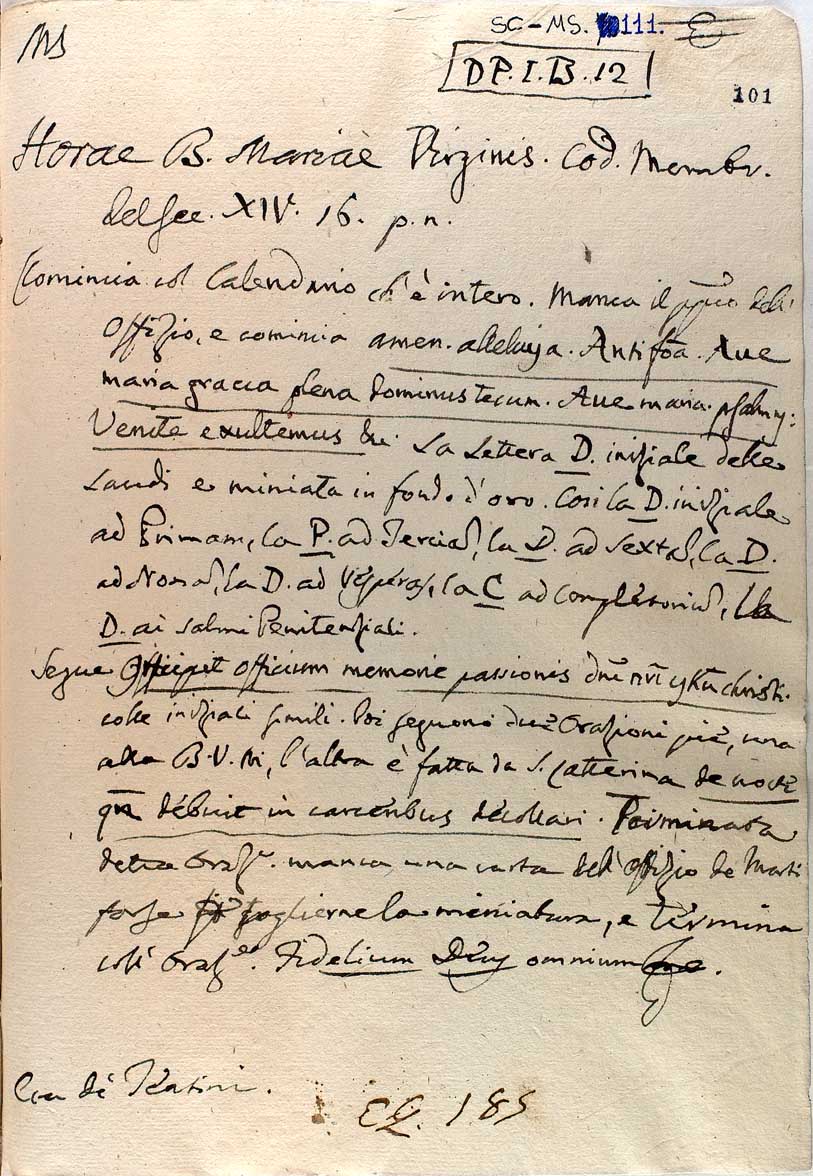 MS
SC-MS. 111.
DP.I.B.12
101
Horae B. Mariae Virginis. Cod. Membr.
del sec. XIV. 16. p.n.
Comincia col Calendario ch'è intero. Manca il ppio dell'
Offizio, e comincia amen. alleluya. Antifōa. Aue
maria gracia plena dominus tecum. Aue maria. psalmy:
Venite exultemus La Lettera D. iniziale delle
Laudi e miniata in fondo d'oro. Cosi la D. iniziale
ad Primam, la P. ad Terciā, la D. ad Sextā, la D.
ad Nonā, la D. ad Vesperas, la C ad Completoriū, la
D. ai salmi Penitenziali.
Segue Incipit officium memorie passionis dn̄i nr̄i yhū christi.
colle iniziali simili. Poi seguono due Orazioni pie, una
alla B.V.M, l'altra è fatta da S. Catterina de nocte
qn̄ debuit in carceribus decollari. Terminata
detta Oraz.e manca una carta dell'offizio de Morti
forse toglierne la miniatura, e termina
coll' Oraz.e Fidelium Deus omnium.
Era de Teatini.
EG. 185